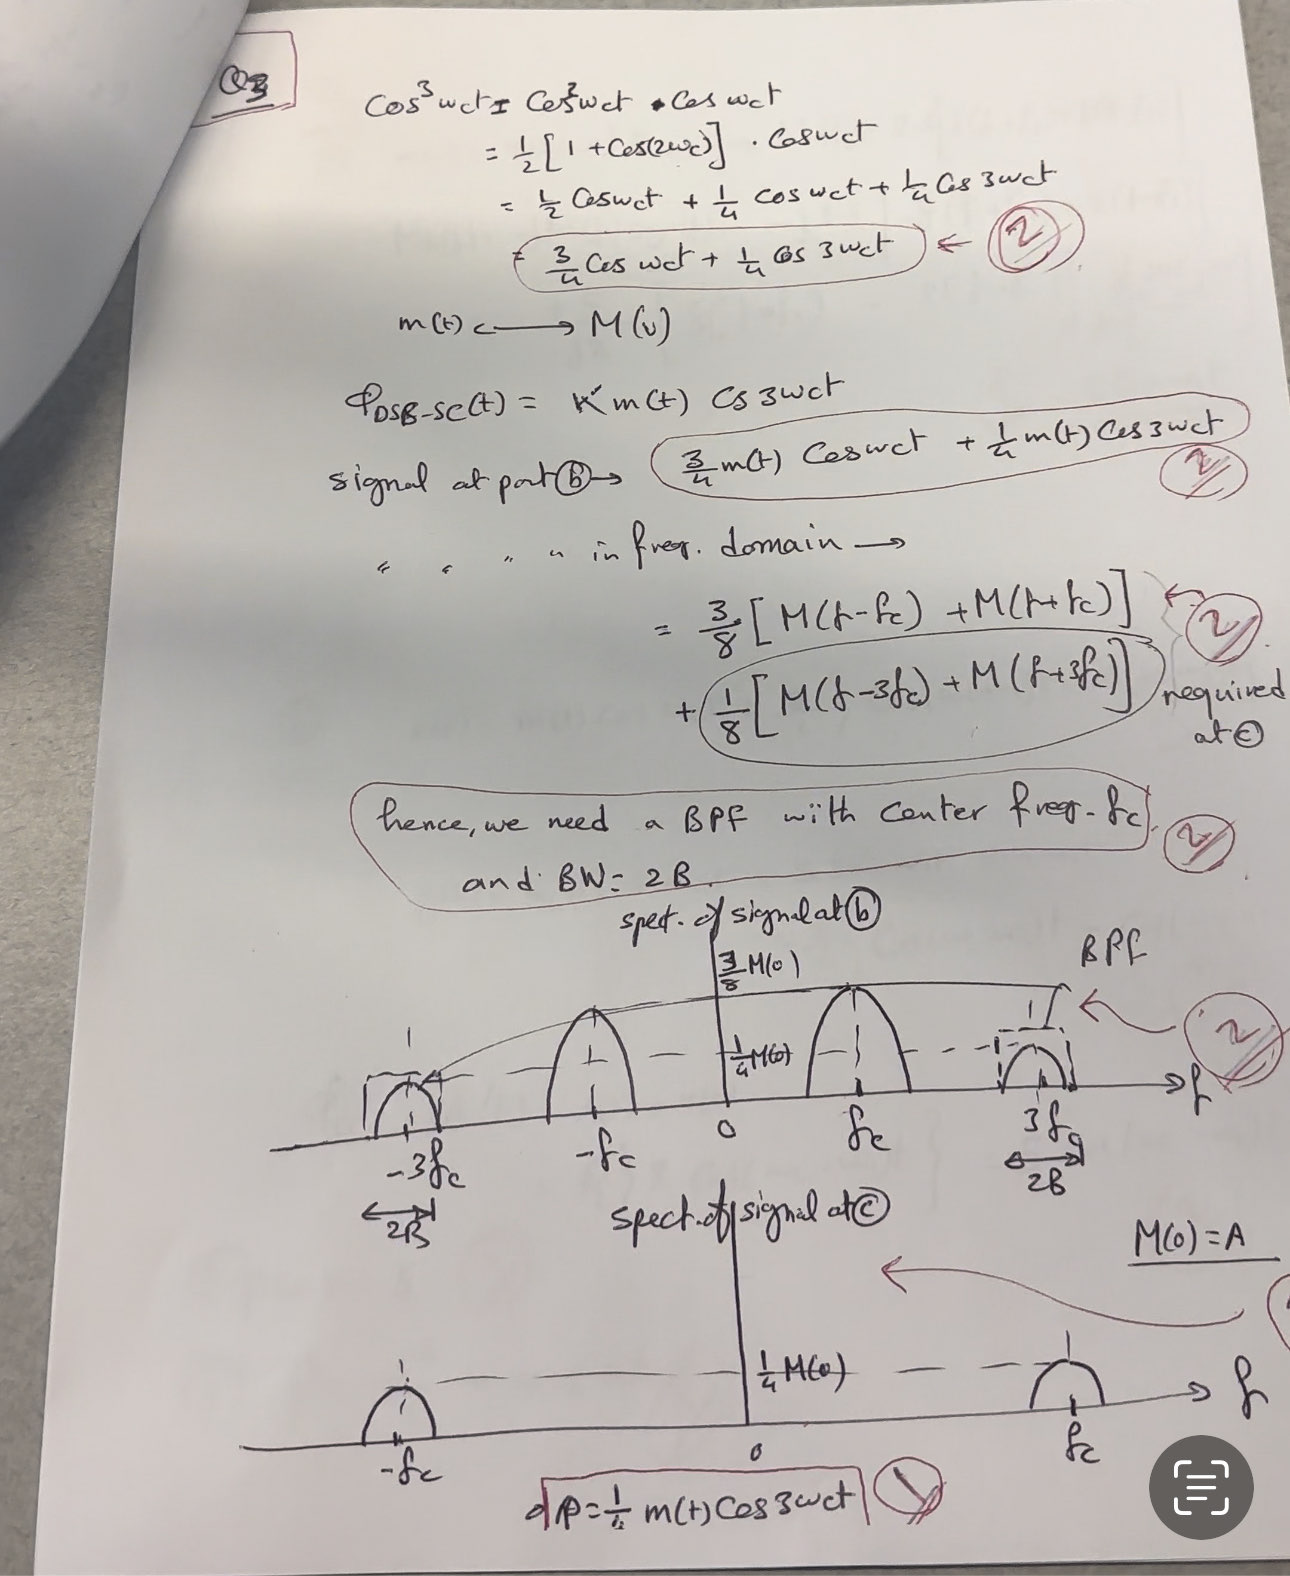 Q3
Cos³wct = Cos²wct • Cos wct
= 1/2 [1 + Cos(2wc)] . Coswct
= 1/2 Coswct + 1/4 cos wct + 1/4 Cos 3wct
= 3/4 Cos wct + 1/4 Cos 3wct ← 2
m(t) ⟷ M(v)
φDSB-SC(t) = K m(t) Cs 3wct
signal at port ⓑ → 3/4 m(t) Coswct + 1/4 m(t) Cos3wct 2
" " " " in freq. domain →
= 3/8 [M(f-fc) + M(f+fc)] ← 2
+ 1/8 [M(f-3fc) + M(f+3fc)] required
at ⓒ
hence, we need a BPF with center freq. fc 2
and BW = 2B.
spect. of signal at ⓑ
3/8 M(0) BPF
1/4 M(0) 2
-3fc -fc 0 fc 3fc f
2B 2B
spect. of signal at ⓒ
M(0) = A
1/4 M(0)
-fc 0 fc f
o/p = 1/4 m(t) Cos 3wct 1